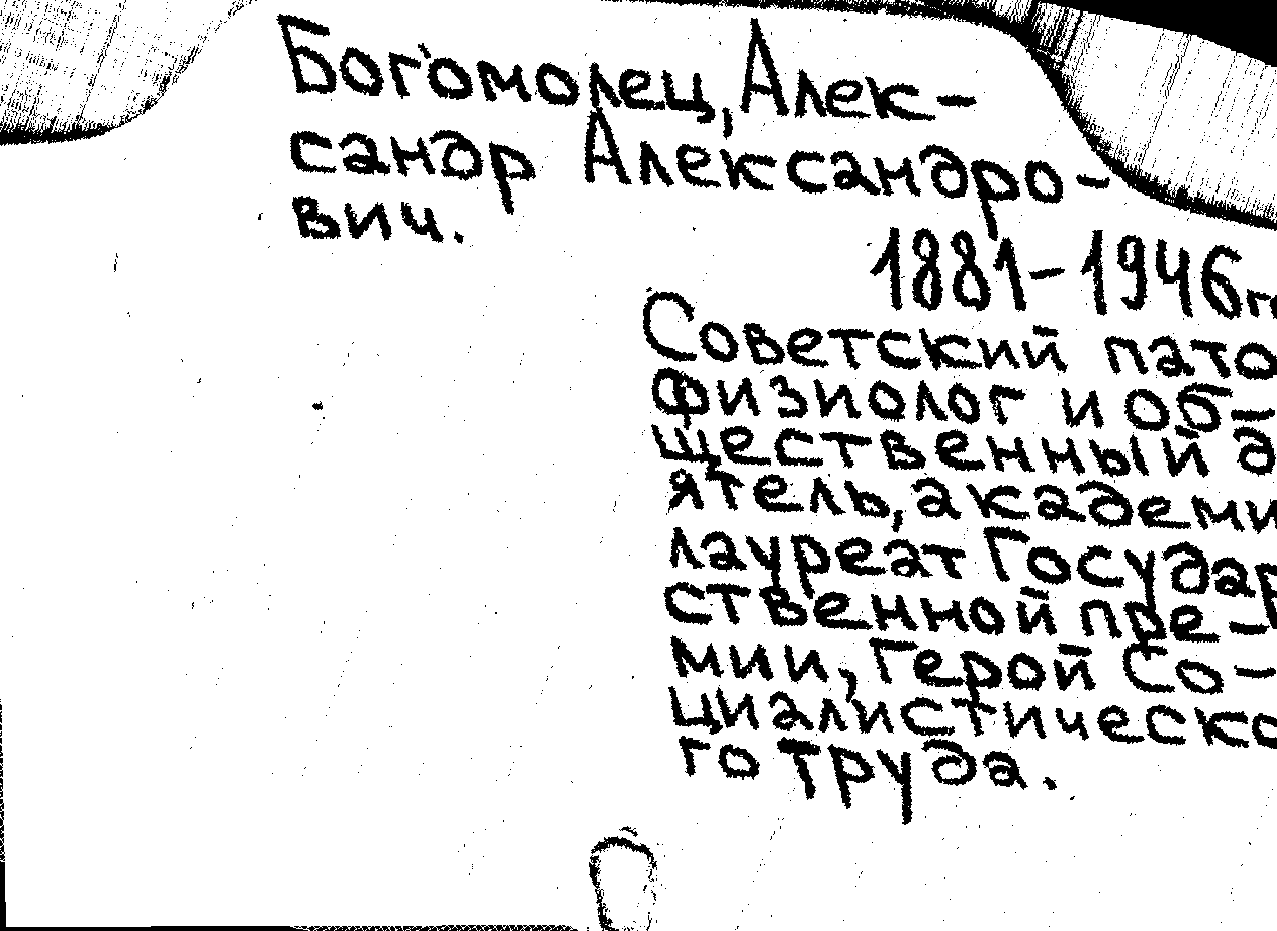 Богомолец, Алек-
сандр Александро-
вич.
1881-1946гг
Советский пато
физиолог и об-
щественный д
ятель, академи
лауреат Государ
ственной пре-
мии, Герой Со-
циалистическо
го труда.